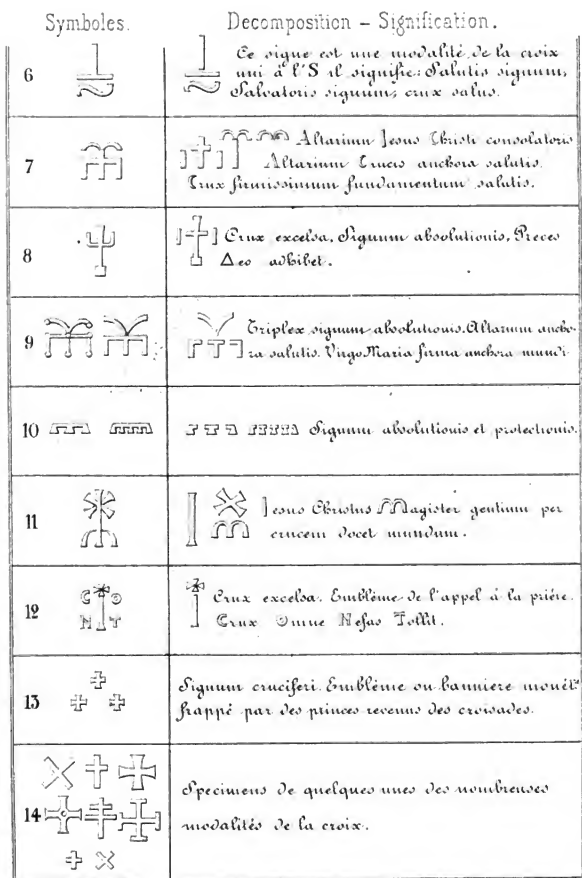 Symboles. Decomposition - Signification.
6 Ce signe est une modalité de la croix
uni à l'S il signifie: Salutis signum,
Salvatoris signum; crux salus.
7 Altarium Jesus Christi consolatoris
Altarium Crucis anchora salutis.
Crux firmissimum fundamentum salutis.
8 Crux excelsa. Signum absolutionis. Preces
Δeo adhibet.
9 Triplex signum absolutionis. Altarium ancho-
ra salutis. Virgo Maria firma anchora mundi
10 Signum absolutionis et protectionis.
11 Jesus Christus Magister gentium per
crucem docet mundum.
12 C O N T Crux excelsa. Emblême de l'appel à la prière.
Crux Omne Nefas Tollit.
13 Signum cruciferi. Emblême ou banniere monét.
frappé par des princes revenus des croisades.
14 Specimens de quelques unes des nombreuses
modalités de la croix.